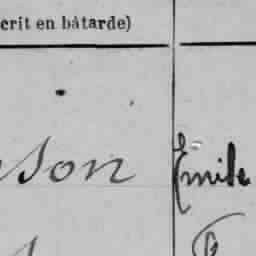 crit en bâtarde)
son Emile